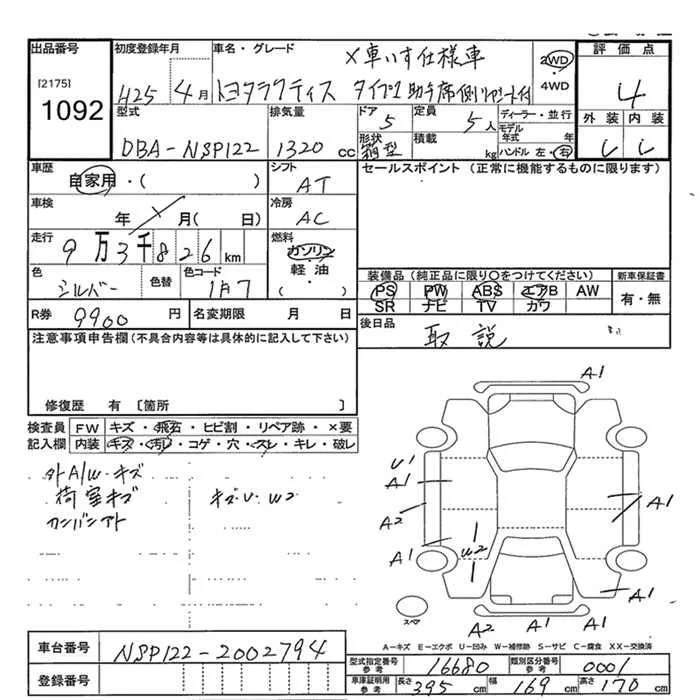 出品番号
[2175]
1092
初度登録年月
H25 4月
車名・グレード
×車いす仕様車
トヨタラクティス タイプ1 助手席側リヤシート付
2WD
4WD
評価点
4
外装 内装
型式
DBA-NSP122
排気量
1320 cc
ドア
5
形状
箱型
定員
5人
積載
kg
ディーラー・並行
モデル年式 年
ハンドル 左・右
車歴
自家用・( )
シフト
AT
セールスポイント (正常に機能するものに限ります)
車検
年 月( 日)
冷房
AC
走行
9万3千826km
燃料
ガソリン
軽油
( )
色
シルバー
色替
色コード
1F7
装備品(純正品に限り〇をつけてください)
新車保証書
PS PW ABS エアB AW
SR ナビ TV カワ
有・無
R券
9900円
名変期限 月 日
後日品
取説
注意事項申告欄(不具合内容等は具体的に記入して下さい)
修復歴 有 〔箇所 〕
検査員記入欄
FW キズ・飛石・ヒビ割・リペア跡・×要
内装 キズ・汚れ・コゲ・穴・スレ・キレ・破レ
外A/W・キズ
荷室キズ キズU W2
カンバンアト
A1
U1
A1
A2
A1
A1
W2
A1
A2
A1
A1
スペア
A-キズ E-エクボ U-凹み W-補修跡 S-サビ C-腐食 XX-交換済
車台番号
NSP122-2002794
登録番号
型式指定番号 参考
16680
類別区分番号 参考
0001
車庫証明用 参考
長さ 395 cm 幅 169 cm 高さ 170 cm